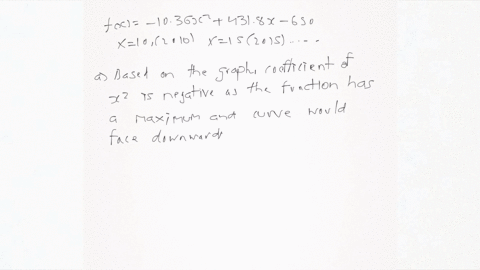 f(x) = -10.36x² + 431.8x - 650
x=10,(2010) x=15(2015) ....
a) Based on the graph, coefficient of
x² is negative as the function has
a maximum and curve would
face downwards